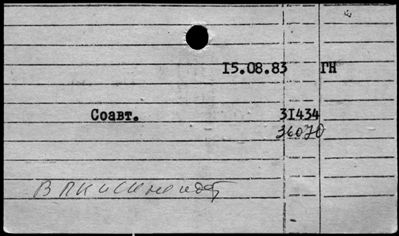 15.08.83 ГН
Соавт. 31434
36070
В ПК и СК не идёт